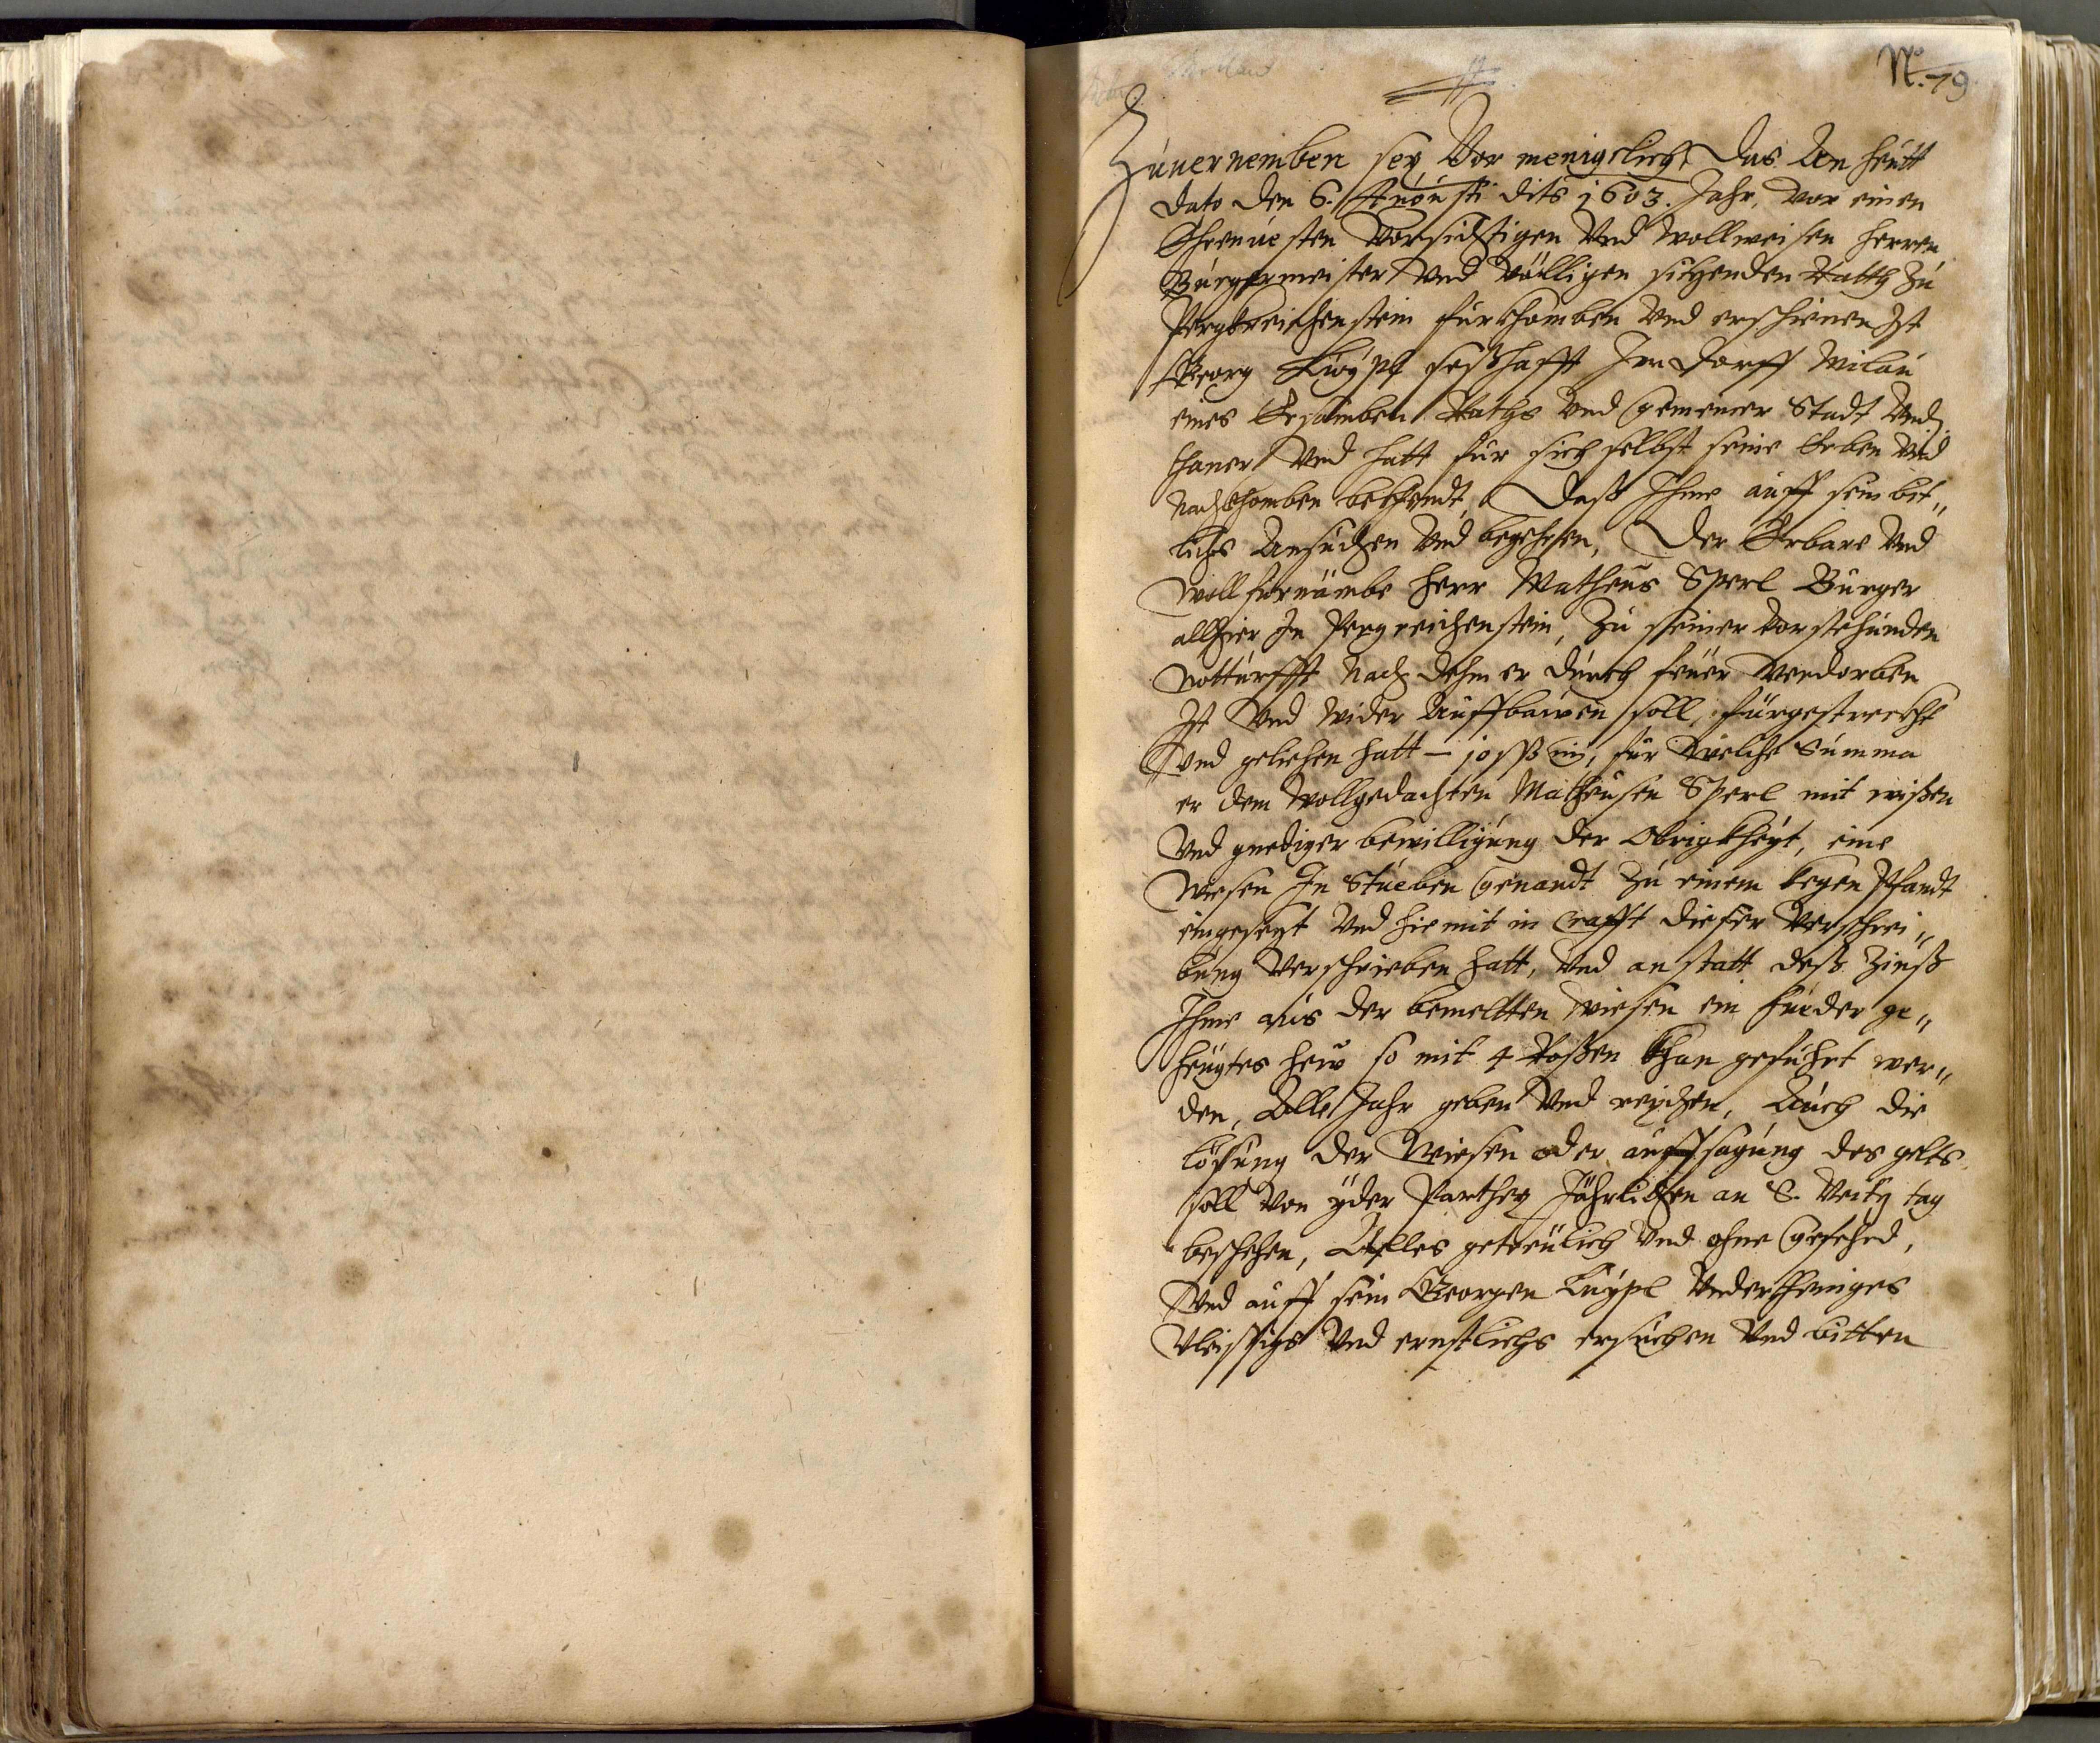 No. 79
Zuuernemben sey Vor menigclich, Das An heutt
dato den 6. Augusti dits 1603. Jahr, vor einen
Ehrenuesten Vorsichtigen Vnd Wollweisen herren
Burgermeister Vnd völligen sitzenden Ratth Zu
Pergkreichenstein fürkhomben Vnd erschienen Ist
Georg Luypl seßhafft Im Dorff Milau
eines Ersamben Raths Vnd gemeiner Stadt Vnd
thaner Vnd hatt für sich selbst seine Erben Vnd
Nachkhomben bekhendt, Daß Ihme auff sein bit„
lichs Ansuchen Vnd begehren, Der Erbare Vnd
Wollfürnämbe Herr Matheus Sperl Burger
allhier In Pergreichenstein, Zu seiner Vorstehunden
Notturfft Nach dehm er durch feuer Verdorben
Ist Vnd Wider Auffbawen soll, fürgestreckht
Vnd geliehen hatt — 10 ß m, für Welche Summa
er dem Wollgedachten Matheusen Sperl mit wißen
Vnd gnediger bewilligung der Obrigkheyt, eine
Wiesen In Stueben Genandt Zu einem kegen Pfandt
eingesetzt Vnd hiemit in Crafft dieser Verschrei„
bung Verschrieben hatt, Vnd anstatt deß Zinß
Ihme aus der bemeltten Wiesen ein fueder ge„
heugtes hew so mit 4 Roßen khan geführt wer„
den, Alle Jahr geben Vnd reychen, Auch die
lößung der Wiesen oder auffsagung des gelts
soll Von yder Parthey Jährlichen an S. Veity tag
beschehen, Alles getreulich Vnd ohne Gefehrd,
Vnd auff sein Georgen Luypl Vndertheniges
Vleissigs Vnd ernstlichs ersuchen Vnd bitten